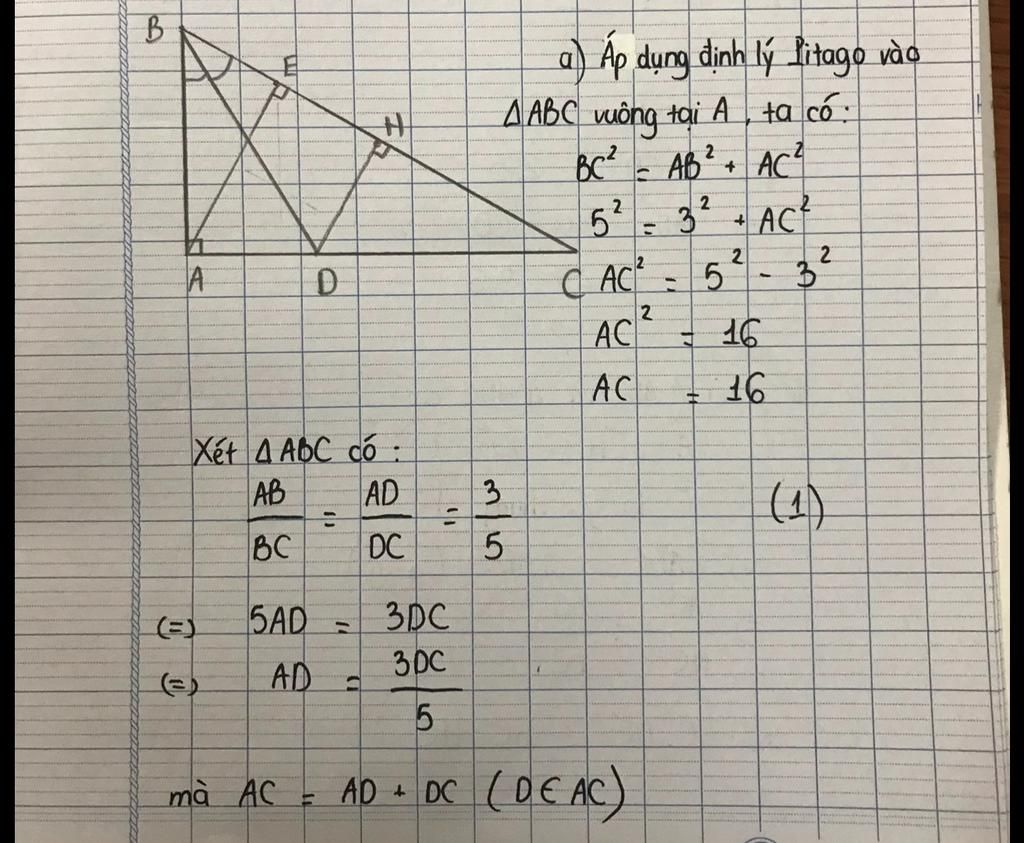 B
E
H
A
D
C
a) Áp dụng định lý Pitago vào
Δ ABC vuông tại A, ta có:
BC² = AB² + AC²
5² = 3² + AC²
AC² = 5² - 3²
AC² = 16
AC = 16
Xét Δ ABC có:
AB/BC = AD/DC = 3/5 (1)
(=) 5AD = 3DC
(=) AD = 3DC/5
mà AC = AD + DC (D ∈ AC)